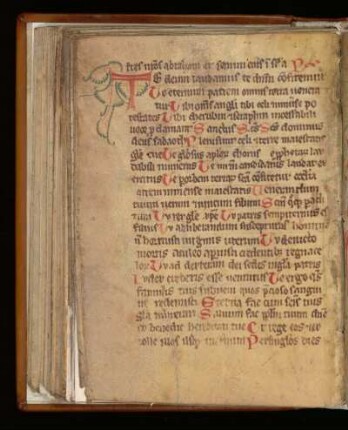 tres nr̄os abraham et semini eius ī sc̄a
Te deum laudamus te dn̄m cōfitemur
Te eternum patrem omnis terra uenera
tur Tibi oēs angli tibi celi uniuse po
testates Tibi cherubin iseraphin incessabili
uoce ꝓclamant Sanctus Scs Scs dominus
deus sabaoth Pleni sunt celi terre maiestatis
gl̄e tue Te gl̄osus aplo⁊ chorus
dabilis numerus Te candidatus laudat ex
ercitus Te per orbem terra⁊ scā cōfitetur ecctīa
atrem immense maiestatis Uenerandum
tuum uerum unicum filium Scm̄
Tu rex gl̄e xpe Tu patris sempiternus es
filius Tu ad liberandum suscepturus
n̄ horruisti uirginis uterum Tu deuicto
mortis aculeo aperuisti credentibz regna ce
Tu ad dexteram dei sedes in gl̄a patris
Iudex crederis esse uenturus Te ergo qs
famulis tuis subueni quos sangui
ne redemisti Eterna fac cum scīs tuis
gl̄a Saluum fac pplm̄ tuum dn̄e
et benedic hereditati tue Et rege eos et ex
tolle illos usqz in Per singlos dies